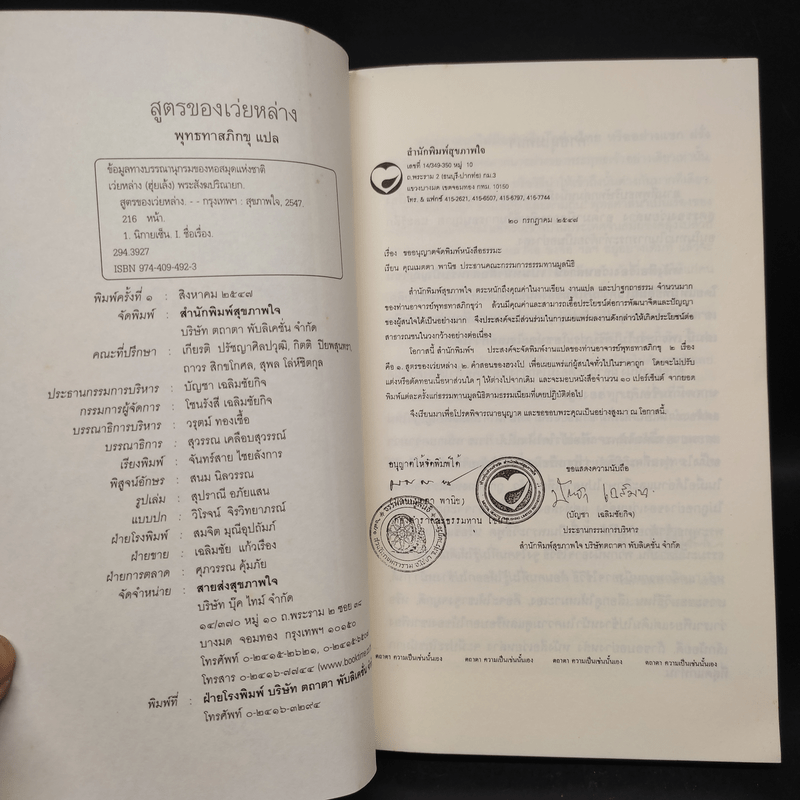 สูตรของเว่ยหล่าง
พุทธทาสภิกขุ แปล
ข้อมูลทางบรรณานุกรมของหอสมุดแห่งชาติ
เว่ยหล่าง (ฮุ่ยเล้ง) พระสังฆปริณายก.
สูตรของเว่ยหล่าง. - - กรุงเทพฯ : สุขภาพใจ, 2547.
216 หน้า.
1. นิกายเซ็น. I. ชื่อเรื่อง.
294.3927
ISBN 974-409-492-3
พิมพ์ครั้งที่ ๑ : สิงหาคม ๒๕๔๗
จัดพิมพ์ : สำนักพิมพ์สุขภาพใจ
บริษัท ตถาตา พับลิเคชั่น จำกัด
คณะที่ปรึกษา : เกียรติ ปรัชญาศิลปวุฒิ, กิตติ ปิยพสุนทรา,
ถาวร สิกขโกศล, สุพล โล่ห์ชิตกุล
ประธานกรรมการบริหาร : บัญชา เฉลิมชัยกิจ
กรรมการผู้จัดการ : โชนรังสี เฉลิมชัยกิจ
บรรณาธิการบริหาร : วรุตม์ ทองเชื้อ
บรรณาธิการ : สุวรรณ เคลือบสุวรรณ์
เรียงพิมพ์ : จันทร์สาย ไชยลังการ
พิสูจน์อักษร : สนม นิลวรรณ
รูปเล่ม : สุปราณี อภัยแสน
แบบปก : วิโรจน์ จิรวิทยาภรณ์
ฝ่ายโรงพิมพ์ : สมจิต มุณีอุปถัมภ์
ฝ่ายขาย : เฉลิมชัย แก้วเรือง
ฝ่ายการตลาด : ศุภวรรณ คุ้มภัย
จัดจำหน่าย : สายส่งสุขภาพใจ
บริษัท บุ๊ค ไทม์ จำกัด
๑๔/๓๗๐ หมู่ ๑๐ ถ.พระราม ๒ ซอย ๓๘
บางมด จอมทอง กรุงเทพฯ ๑๐๑๕๐
โทรศัพท์ ๐-๒๔๑๕-๒๖๒๑, ๐-๒๔๑๕-๖๕๐๗
โทรสาร ๐-๒๔๑๖-๗๗๔๔ (www.booktime
พิมพ์ที่ : ฝ่ายโรงพิมพ์ บริษัท ตถาตา พับลิเคชั่น จำกัด
โทรศัพท์ ๐-๒๔๑๖-๓๒๙๔
สำนักพิมพ์สุขภาพใจ
เลขที่ 14/349-350 หมู่ 10
ถ.พระราม 2 (ธนบุรี-ปากท่อ) กม.3
แขวงบางมด เขตจอมทอง กทม. 10150
โทร. & แฟกซ์ 415-2621, 415-6507, 415-6797, 415-7744
๒๐ กรกฎาคม ๒๕๔๗
เรื่อง ขออนุญาตจัดพิมพ์หนังสือธรรมะ
เรียน คุณเมตตา พานิช ประธานคณะกรรมการธรรมทานมูลนิธิ
สำนักพิมพ์สุขภาพใจ ตระหนักถึงคุณค่าในงานเขียน งานแปล และปาฐกถาธรรม จำนวนมาก
ของท่านอาจารย์พุทธทาสภิกขุว่า ล้วนมีคุณค่าและสามารถเอื้อประโยชน์ต่อการพัฒนาจิตและปัญญา
ของผู้สนใจได้เป็นอย่างมาก จึงประสงค์จะมีส่วนร่วมในการเผยแพร่ผลงานดังกล่าวให้เกิดประโยชน์ต่อ
สาธารณชนในวงกว้างอย่างต่อเนื่อง
โอกาสนี้ สำนักพิมพ์ฯ ประสงค์จะจัดพิมพ์งานแปลของท่านอาจารย์พุทธทาสภิกขุ ๒ เรื่อง
คือ ๑. สูตรของเว่ยหล่าง ๒. คำสอนของฮวงโป เพื่อเผยแพร่แก่ผู้สนใจทั่วไปในราคาถูก โดยจะไม่ปรับ
แต่งหรือตัดทอนเนื้อหาส่วนใด ๆ ให้ต่างไปจากเดิม และจะมอบหนังสือจำนวน ๑๐ เปอร์เซ็นต์ จากยอด
พิมพ์แต่ละครั้งแก่ธรรมทานมูลนิธิตามธรรมเนียมที่เคยปฏิบัติต่อไป
จึงเรียนมาเพื่อโปรดพิจารณาอนุญาต และขอขอบพระคุณเป็นอย่างสูงมา ณ โอกาสนี้.
อนุญาตให้จัดพิมพ์ได้
ขอแสดงความนับถือ
พานิช)
(บัญชา เฉลิมชัยกิจ)
ประธานกรรมการบริหาร
สำนักพิมพ์สุขภาพใจ บริษัทตถาตา พับลิเคชั่น จำกัด
ตถาตา ความเป็นเช่นนั้นเอง ตถาตา ความเป็นเช่นนั้นเอง ตถาตา ความเป็นเช่นนั้นเอง